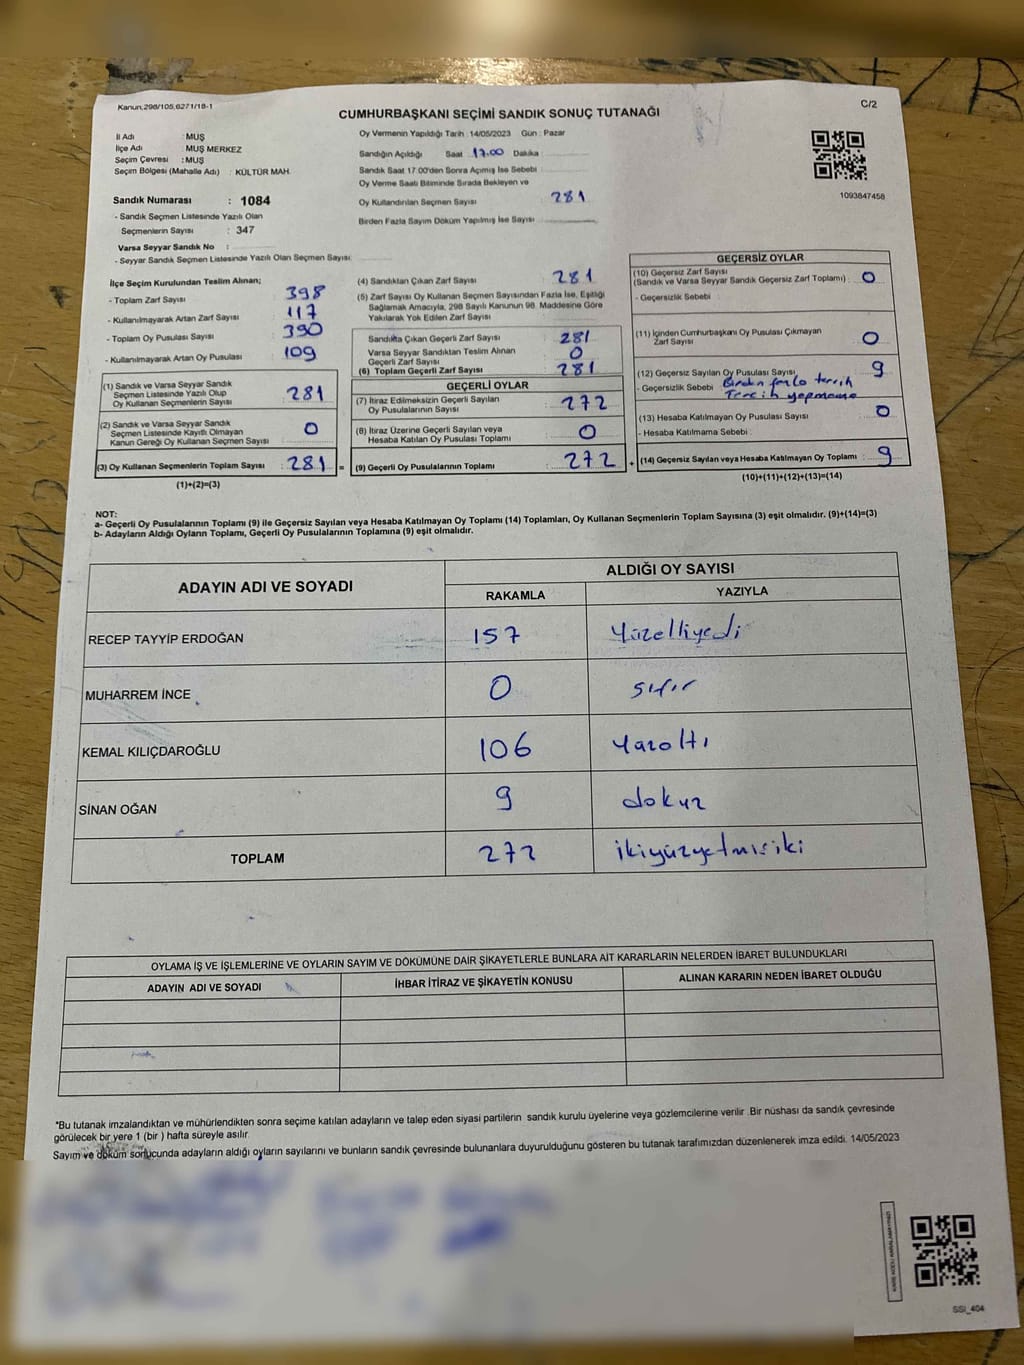 Kanun;298/105,6271/18-1
C/2
CUMHURBAŞKANI SEÇİMİ SANDIK SONUÇ TUTANAĞI
İl Adı : MUŞ
İlçe Adı MUŞ MERKEZ
Seçim Çevresi : MUŞ
Seçim Bölgesi (Mahalle Adı) : KÜLTÜR MAH.
Sandık Numarası : 1084
- Sandık Seçmen Listesinde Yazılı Olan
Seçmenlerin Sayısı : 347
Varsa Seyyar Sandık No :
- Seyyar Sandık Seçmen Listesinde Yazılı Olan Seçmen Sayısı:
Oy Vermenin Yapıldığı Tarih :14/05/2023 Gün : Pazar
Sandığın Açıldığı Saat 17.00 Dakika
Sandık Saat 17:00'den Sonra Açımış İse Sebebi
Oy Verme Saati Bitiminde Sırada Bekleyen ve
Oy Kullandırılan Seçmen Sayısı 281
Birden Fazla Sayım Döküm Yapılmış İse Sayısı
1093847458
İlçe Seçim Kurulundan Teslim Alınan;
- Toplam Zarf Sayısı 398
- Kullanılmayarak Artan Zarf Sayısı 117
- Toplam Oy Pusulası Sayısı 390
- Kullanılmayarak Artan Oy Pusulası 109
(1) Sandık ve Varsa Seyyar Sandık
Seçmen Listesinde Yazılı Olup
Oy Kullanan Seçmenlerin Sayısı 281
(2) Sandık ve Varsa Seyyar Sandık
Seçmen Listesinde Kayıtlı Olmayan
Kanun Gereği Oy Kullanan Seçmen Sayısı 0
(3) Oy Kullanan Seçmenlerin Toplam Sayısı : 281 =
(1)+(2)=(3)
(4) Sandıktan Çıkan Zarf Sayısı 281
(5) Zarf Sayısı Oy Kullanan Seçmen Sayısından Fazla İse, Eşitliği
Sağlamak Amacıyla, 298 Sayılı Kanunun 98. Maddesine Göre
Yakılarak Yok Edilen Zarf Sayısı
Sandıkta Çıkan Geçerli Zarf Sayısı 281
Varsa Seyyar Sandıktan Teslim Alınan
Geçerli Zarf Sayısı 0
(6) Toplam Geçerli Zarf Sayısı 281
GEÇERLİ OYLAR
(7) İtiraz Edilmeksizin Geçerli Sayılan
Oy Pusulalarının Sayısı 272
(8) İtiraz Üzerine Geçerli Sayılan veya
Hesaba Katılan Oy Pusulası Toplamı 0
(9) Geçerli Oy Pusulalarının Toplamı 272 +
GEÇERSİZ OYLAR
(10) Geçersiz Zarf Sayısı
(Sandık ve Varsa Seyyar Sandık Geçersiz Zarf Toplamı) : 0
- Geçersizlik Sebebi :
(11) İçinden Cumhurbaşkanı Oy Pusulası Çıkmayan
Zarf Sayısı 0
(12) Geçersiz Sayılan Oy Pusulası Sayısı 9
- Geçersizlik Sebebi Birden fazla tercih
Tercih yapmama
(13) Hesaba Katılmayan Oy Pusulası Sayısı 0
- Hesaba Katılmama Sebebi :
(14) Geçersiz Sayılan veya Hesaba Katılmayan Oy Toplamı : 9
(10)+(11)+(12)+(13)=(14)
NOT:
a- Geçerli Oy Pusulalarının Toplamı (9) ile Geçersiz Sayılan veya Hesaba Katılmayan Oy Toplamı (14) Toplamları, Oy Kullanan Seçmenlerin Toplam Sayısına (3) eşit olmalıdır. (9)+(14)=(3)
b- Adayların Aldığı Oyların Toplamı, Geçerli Oy Pusulalarının Toplamına (9) eşit olmalıdır.
ADAYIN ADI VE SOYADI
ALDIĞI OY SAYISI
RAKAMLA YAZIYLA
RECEP TAYYİP ERDOĞAN 157 Yüzelliyedi
MUHARREM İNCE 0 sıfır
KEMAL KILIÇDAROĞLU 106 Yüzaltı
SİNAN OĞAN 9 dokuz
TOPLAM 272 ikiyüzyetmişiki
OYLAMA İŞ VE İŞLEMLERİNE VE OYLARIN SAYIM VE DÖKÜMÜNE DAİR ŞİKAYETLERLE BUNLARA AİT KARARLARIN NELERDEN İBARET BULUNDUKLARI
ADAYIN ADI VE SOYADI İHBAR İTİRAZ VE ŞİKAYETİN KONUSU ALINAN KARARIN NEDEN İBARET OLDUĞU
*Bu tutanak imzalandıktan ve mühürlendikten sonra seçime katılan adayların ve talep eden siyasi partilerin sandık kurulu üyelerine veya gözlemcilerine verilir .Bir nüshası da sandık çevresinde
görülecek bir yere 1 (bir ) hafta süreyle asılır.
Sayım ve döküm sonucunda adayların aldığı oyların sayılarını ve bunların sandık çevresinde bulunanlara duyurulduğunu gösteren bu tutanak tarafımızdan düzenlenerek imza edildi. 14/05/2023
SSI_404